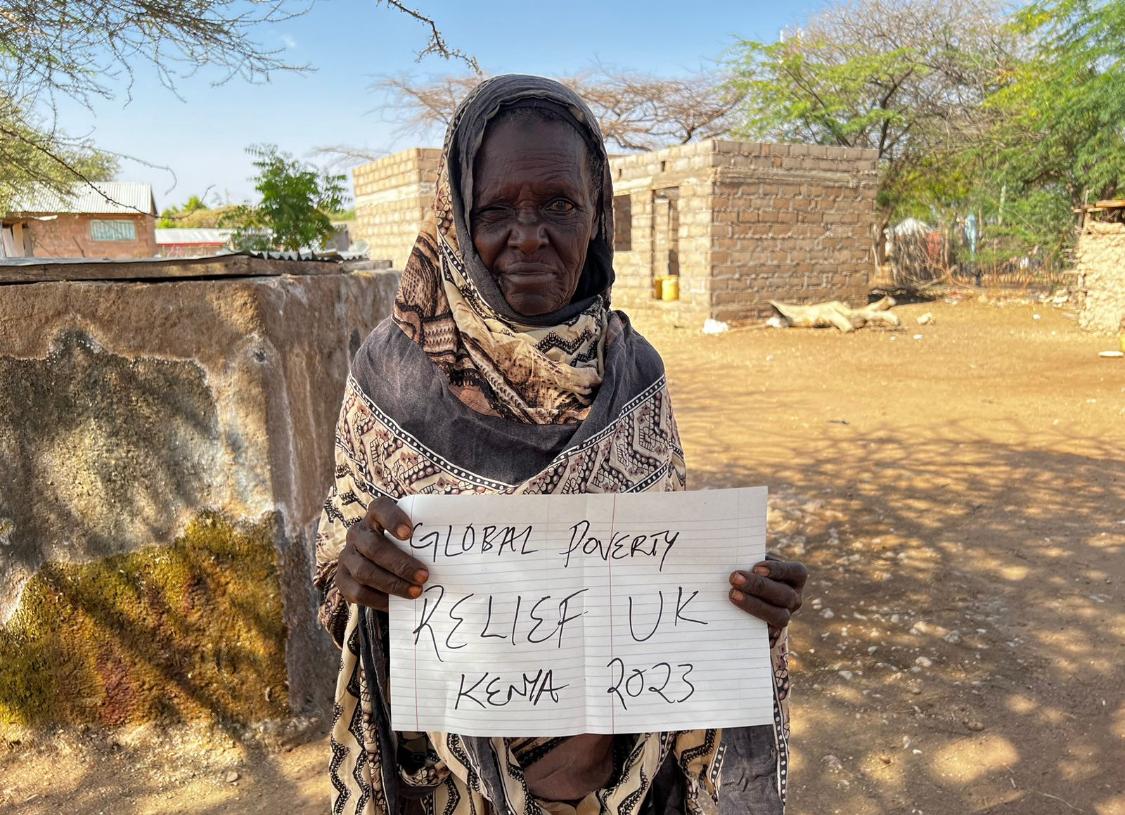 GLOBAL POVERTY
RELIEF UK
KENYA 2023